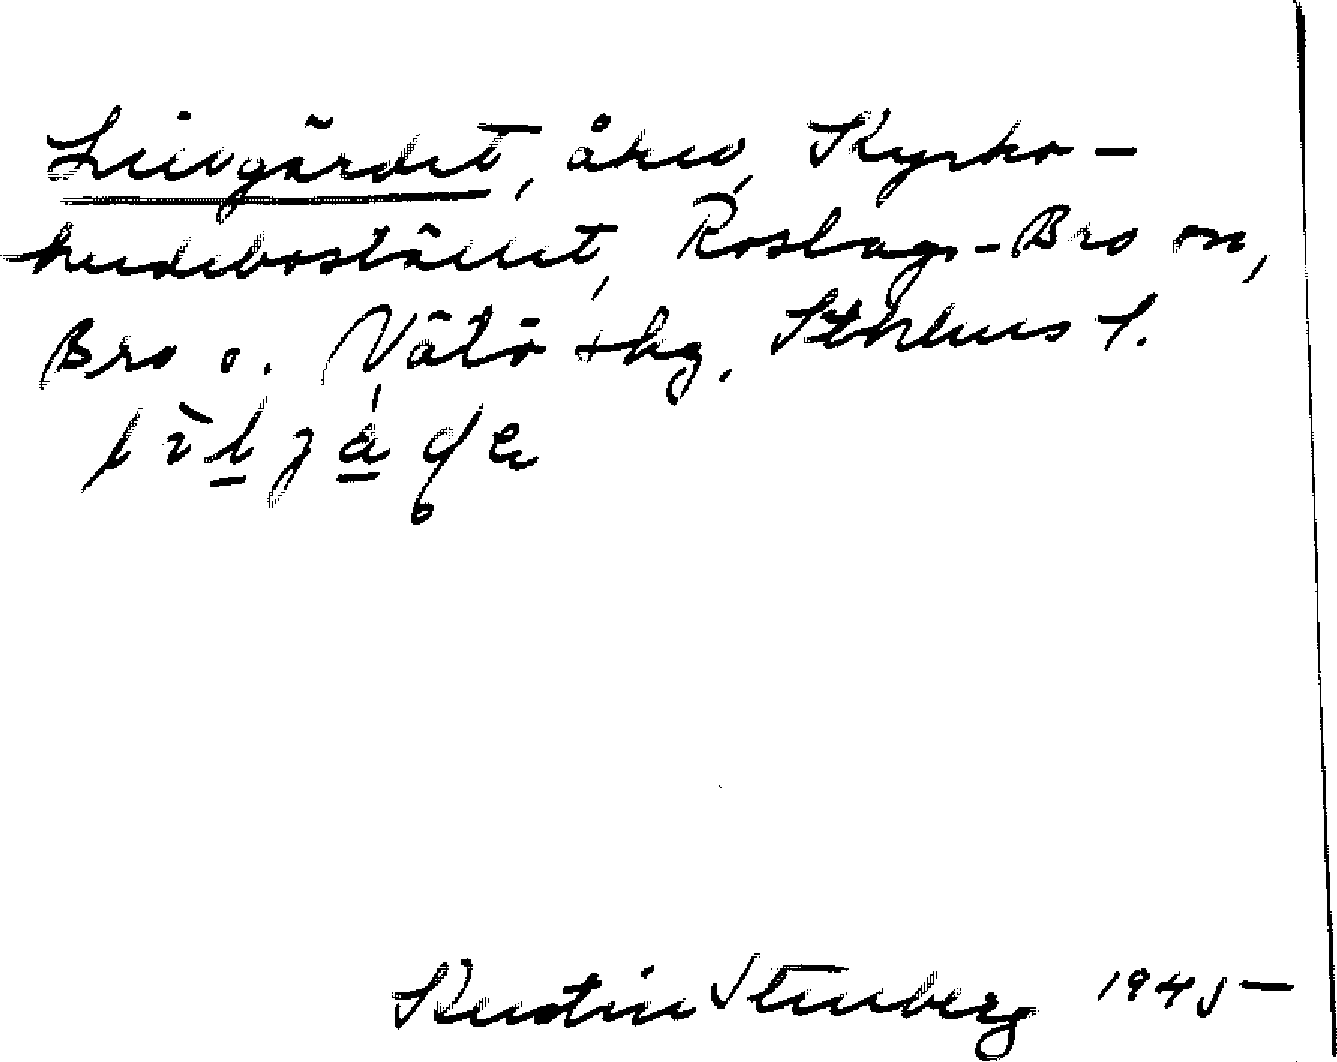 Lillgärdet, åker, Kyrko-
herdebostället, Roslags-Bro sn,
Bro o. Vätö skg, Sthlms l.
Kerstin Stenberg 1945